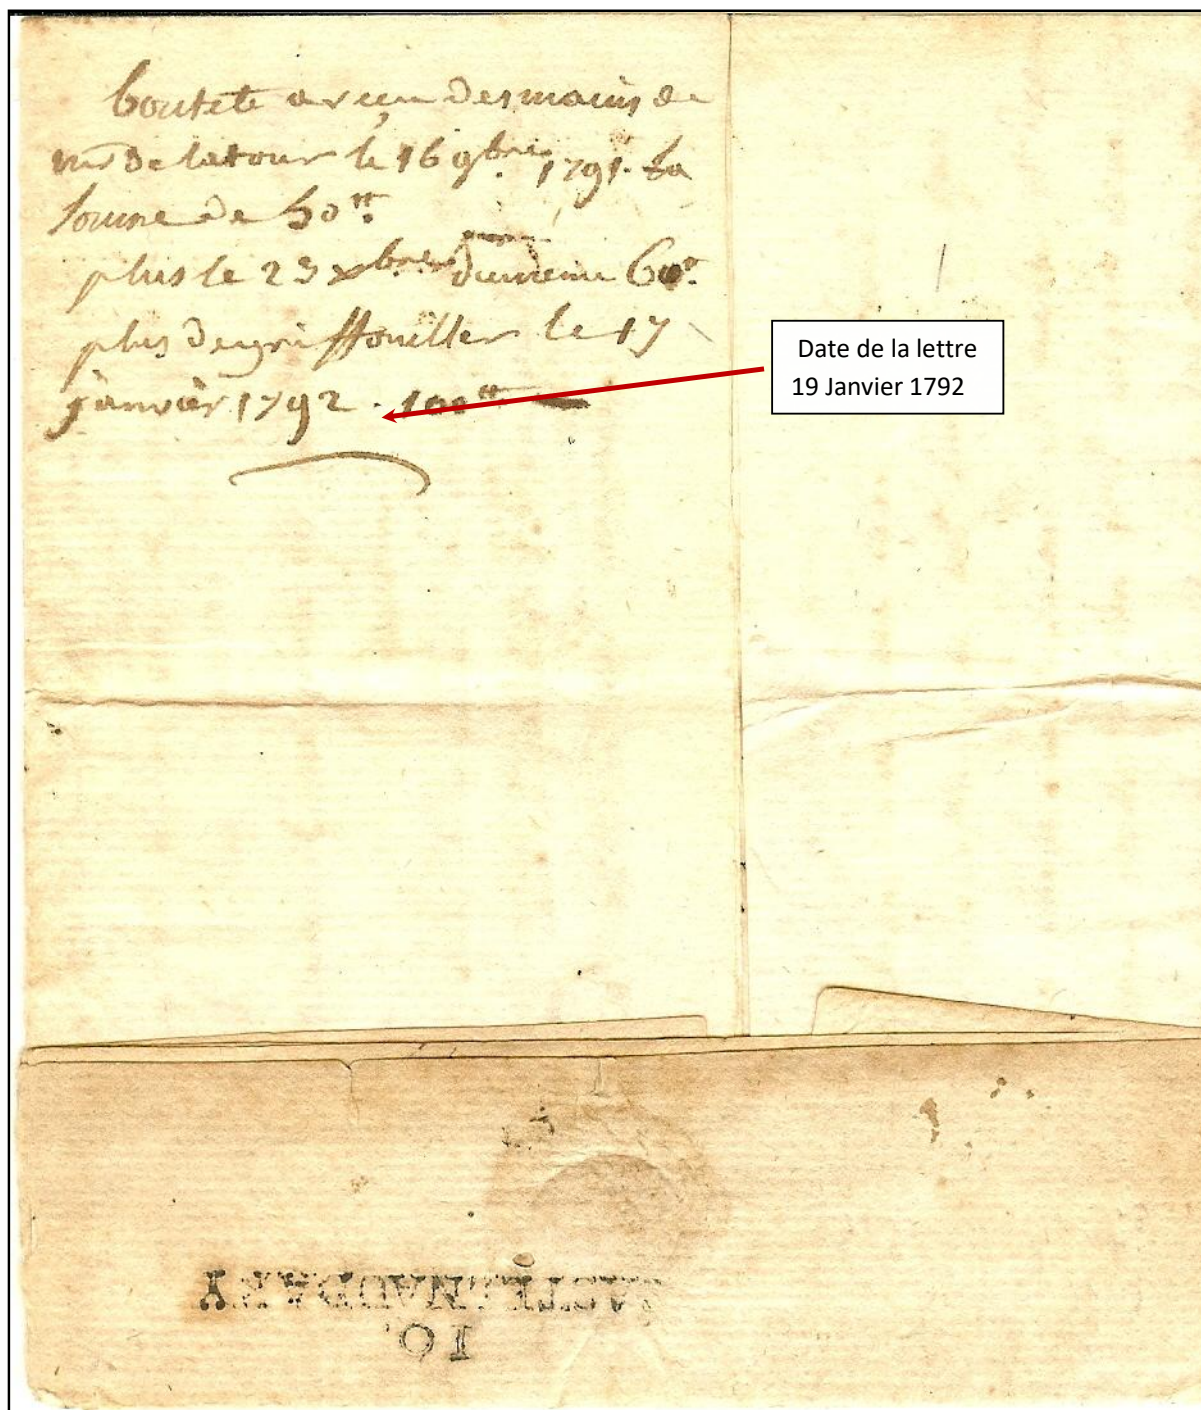 boutete a reçu des mains de
mr de latour le 16 9bre 1791. la
somme de 50tt
plus le 23 xbre du meme 60tt
plus de griffouiller le 17
janvier 1792 . 100tt
Date de la lettre
19 Janvier 1792
10